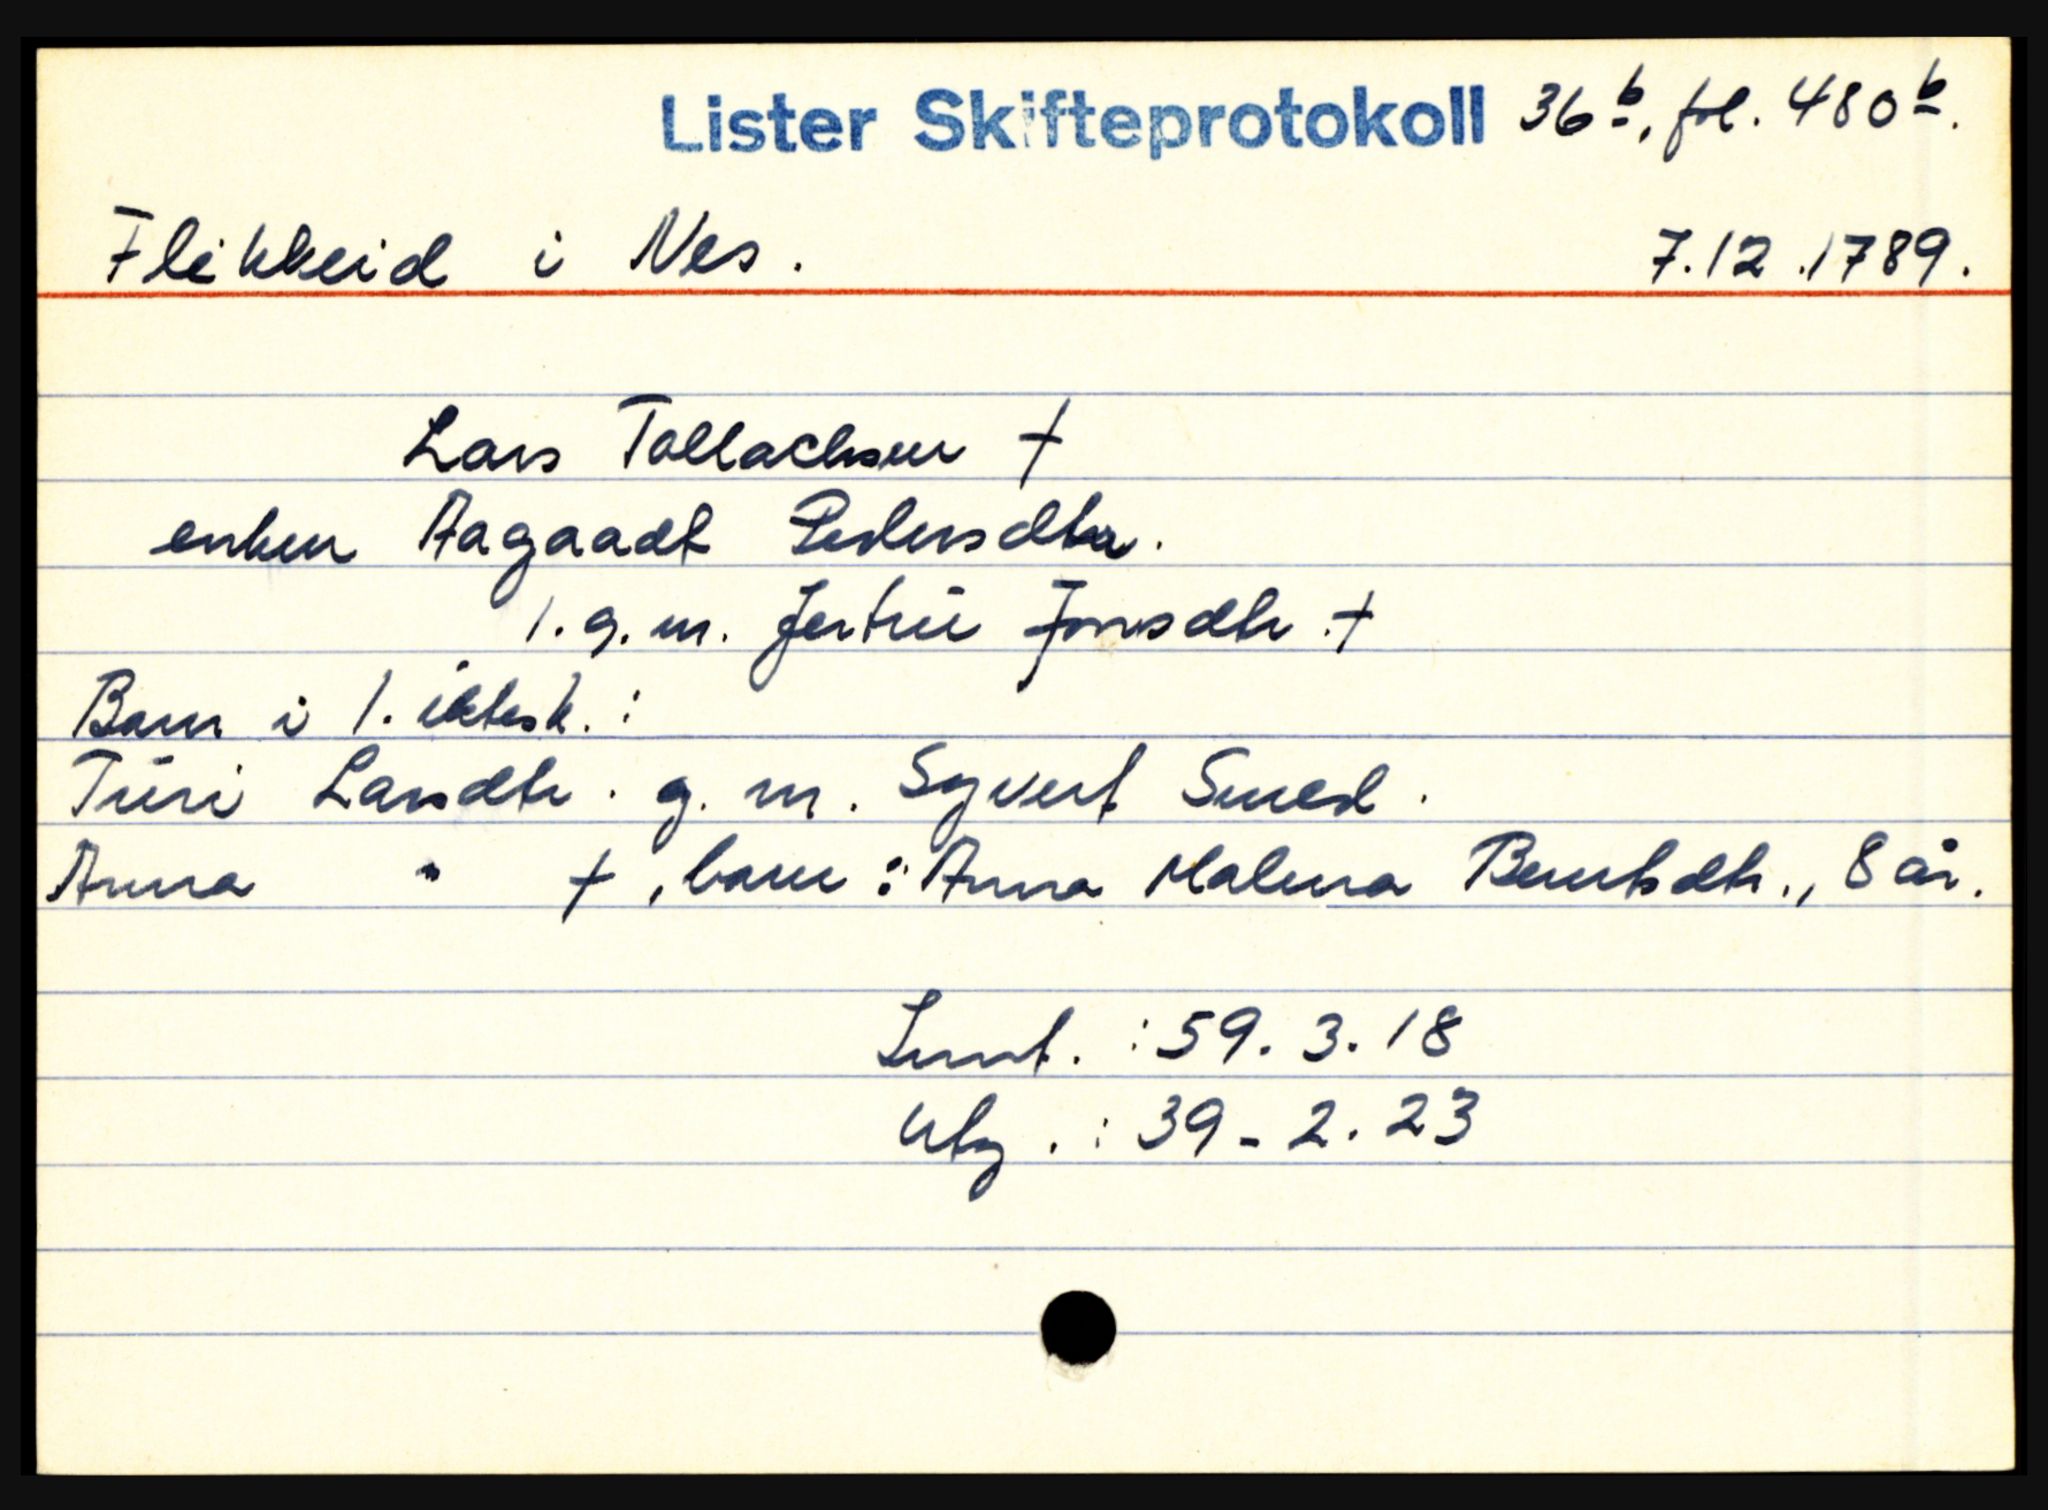 Lister Skifteprotokoll 36 b, fol. 480 b.
Flikkeid i Nes. 7.12.1789.
Lars Tallachsen †
enken Aagaadt Pedersdtr.
1. g. m. Jertrü Jonsdtr. †
Barn i 1. ektesk. :
Türi Larsdtr. g. m. Syvert Smed.
Anna " †, barn : Anna Malena Berntsdtr., 8 år.
: 59. 3. 18
Utg. : 39 - 2. 23